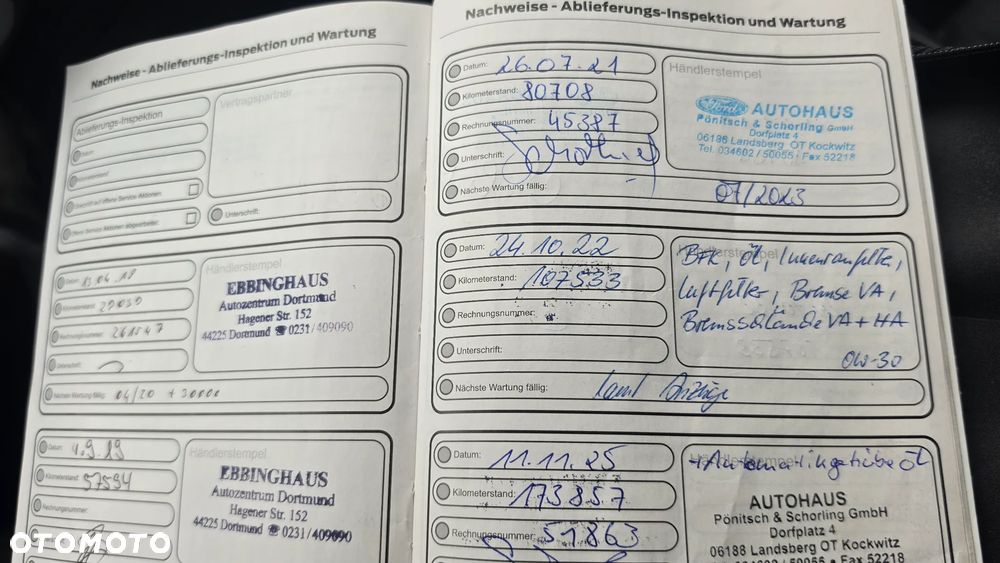 Nachweise - Ablieferungs-Inspektion und Wartung
Ablieferungs-Inspektion
Vertragspartner
Datum:
Kilometerstand:
Offene Service Aktionen abgearbeitet:
Unterschrift:
Datum: 13.04.18
Kilometerstand: 29030
Rechnungsnummer: 261547
Unterschrift:
Nächste Wartung fällig: 04/20 + 30000
Händlerstempel
EBBINGHAUS
Autozentrum Dortmund
Hagener Str. 152
44225 Dortmund ☎ 0231/409090
Datum: 4.9.19
Kilometerstand: 57594
Rechnungsnummer:
Händlerstempel
EBBINGHAUS
Autozentrum Dortmund
Hagener Str. 152
44225 Dortmund ☎ 0231/409090
OTOMOTO
Nachweise - Ablieferungs-Inspektion und Wartung
Datum: 26.07.21
Kilometerstand: 80708
Rechnungsnummer: 45387
Unterschrift:
Nächste Wartung fällig: 07/2023
Händlerstempel
Ford AUTOHAUS
Pönitsch & Schorling GmbH
Dorfplatz 4
06188 Landsberg OT Kockwitz
Tel. 034602/50055 · Fax 52218
Datum: 24.10.22
Kilometerstand: 107533
Rechnungsnummer:
Unterschrift:
Nächste Wartung fällig: laut Anzeige
Händlerstempel
BFK, Öl, Innenraumfilter,
Luftfilter, Bremse VA,
Bremsscheibe VA + HA
0W-30
Datum: 11.11.25
Kilometerstand: 173857
Rechnungsnummer: 51863
Händlerstempel
+ Automatikgetriebe Öl
AUTOHAUS
Pönitsch & Schorling GmbH
Dorfplatz 4
06188 Landsberg OT Kockwitz
034602/50055 • Fax 52218